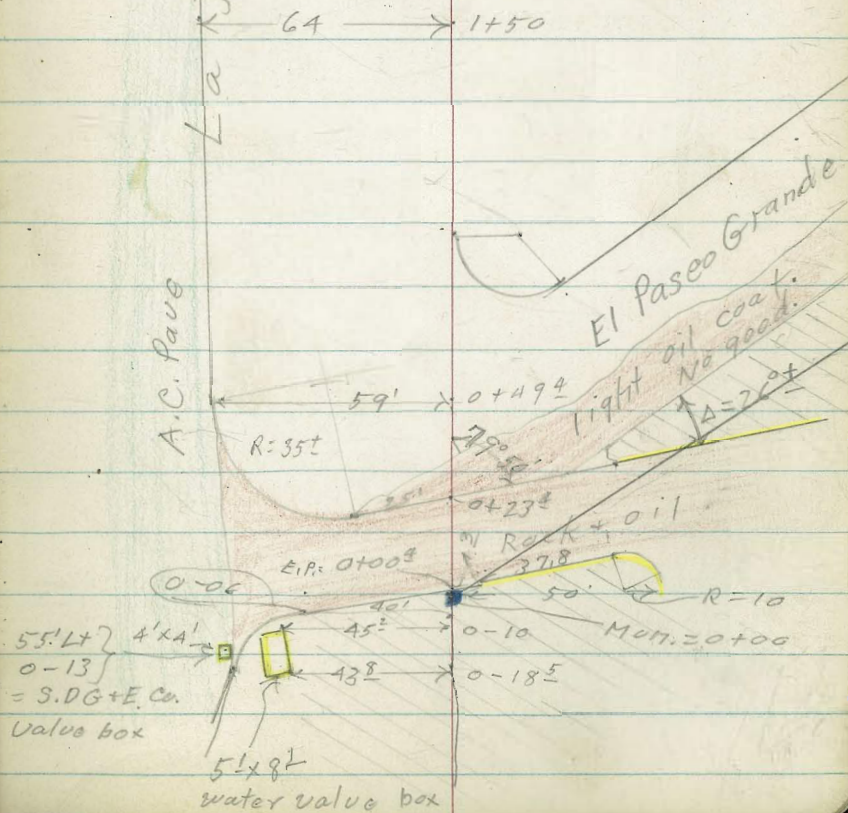 64 1+50
La
A.C. Pave
El Paseo Grande
light oil coat.
No good.
59' 0+49 4
Δ=26°±
R=35±
79°
25'
0+23 4
Rock + oil
E.P.= 0+00 4
37.8
0-06
40'
50'
R=10
45 2 0-10
Mon.=0+00
55' Lt
0-13
= S.D G+E. Co.
Value box
4'x4'
43 8 0-18 5
5'x8'
water value box